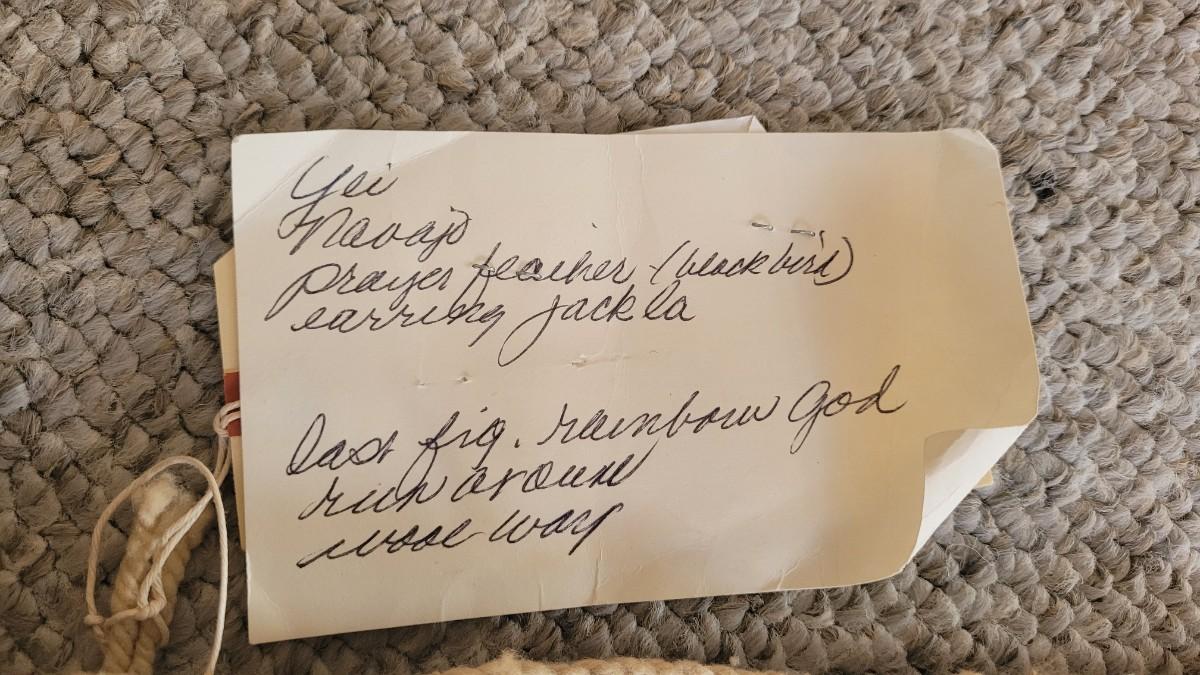 Yei
Navajo
prayer feather (blackbird)
earring jackla
Last fig. rainbow God
run around
wool warp